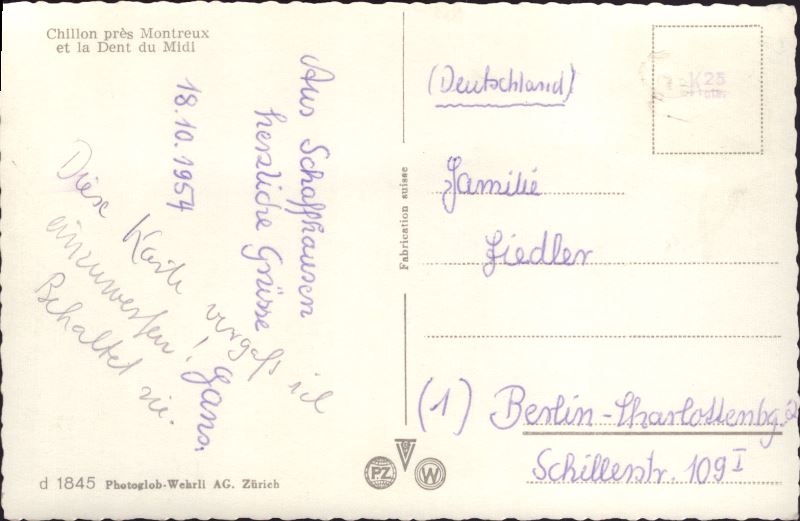 Chillon près Montreux
et la Dent du Midi
18.10.1954
Aus Schaffhausen
herzliche Grüsse
Hans.
Diese Karte vergaß ich
einzuwerfen!
Behaltet sie.
d 1845 Photoglob-Wehrli AG. Zürich
Fabrication suisse
PZ
W
K 25
(Deutschland)
Familie
Fiedler
(1) Berlin-Charlottenbg. 2
Schillerstr. 109 I